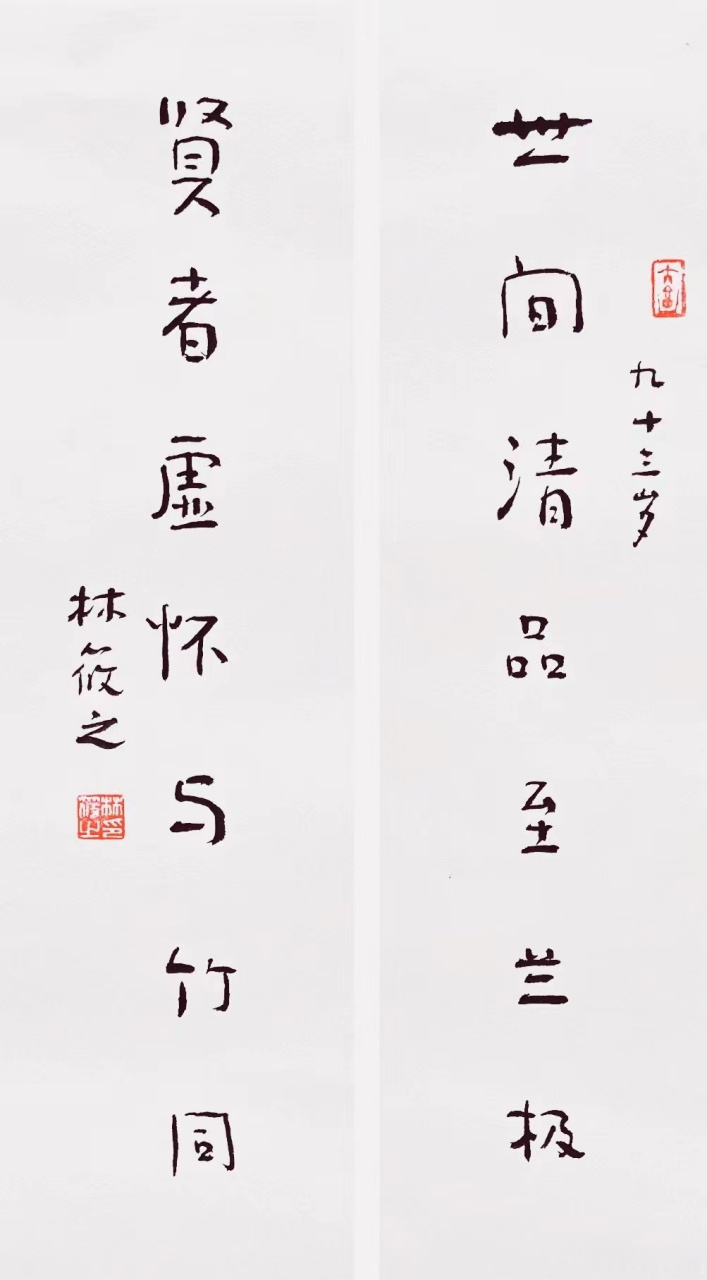 世间清品至兰极
九十三岁
贤者虚怀与竹同
林筱之